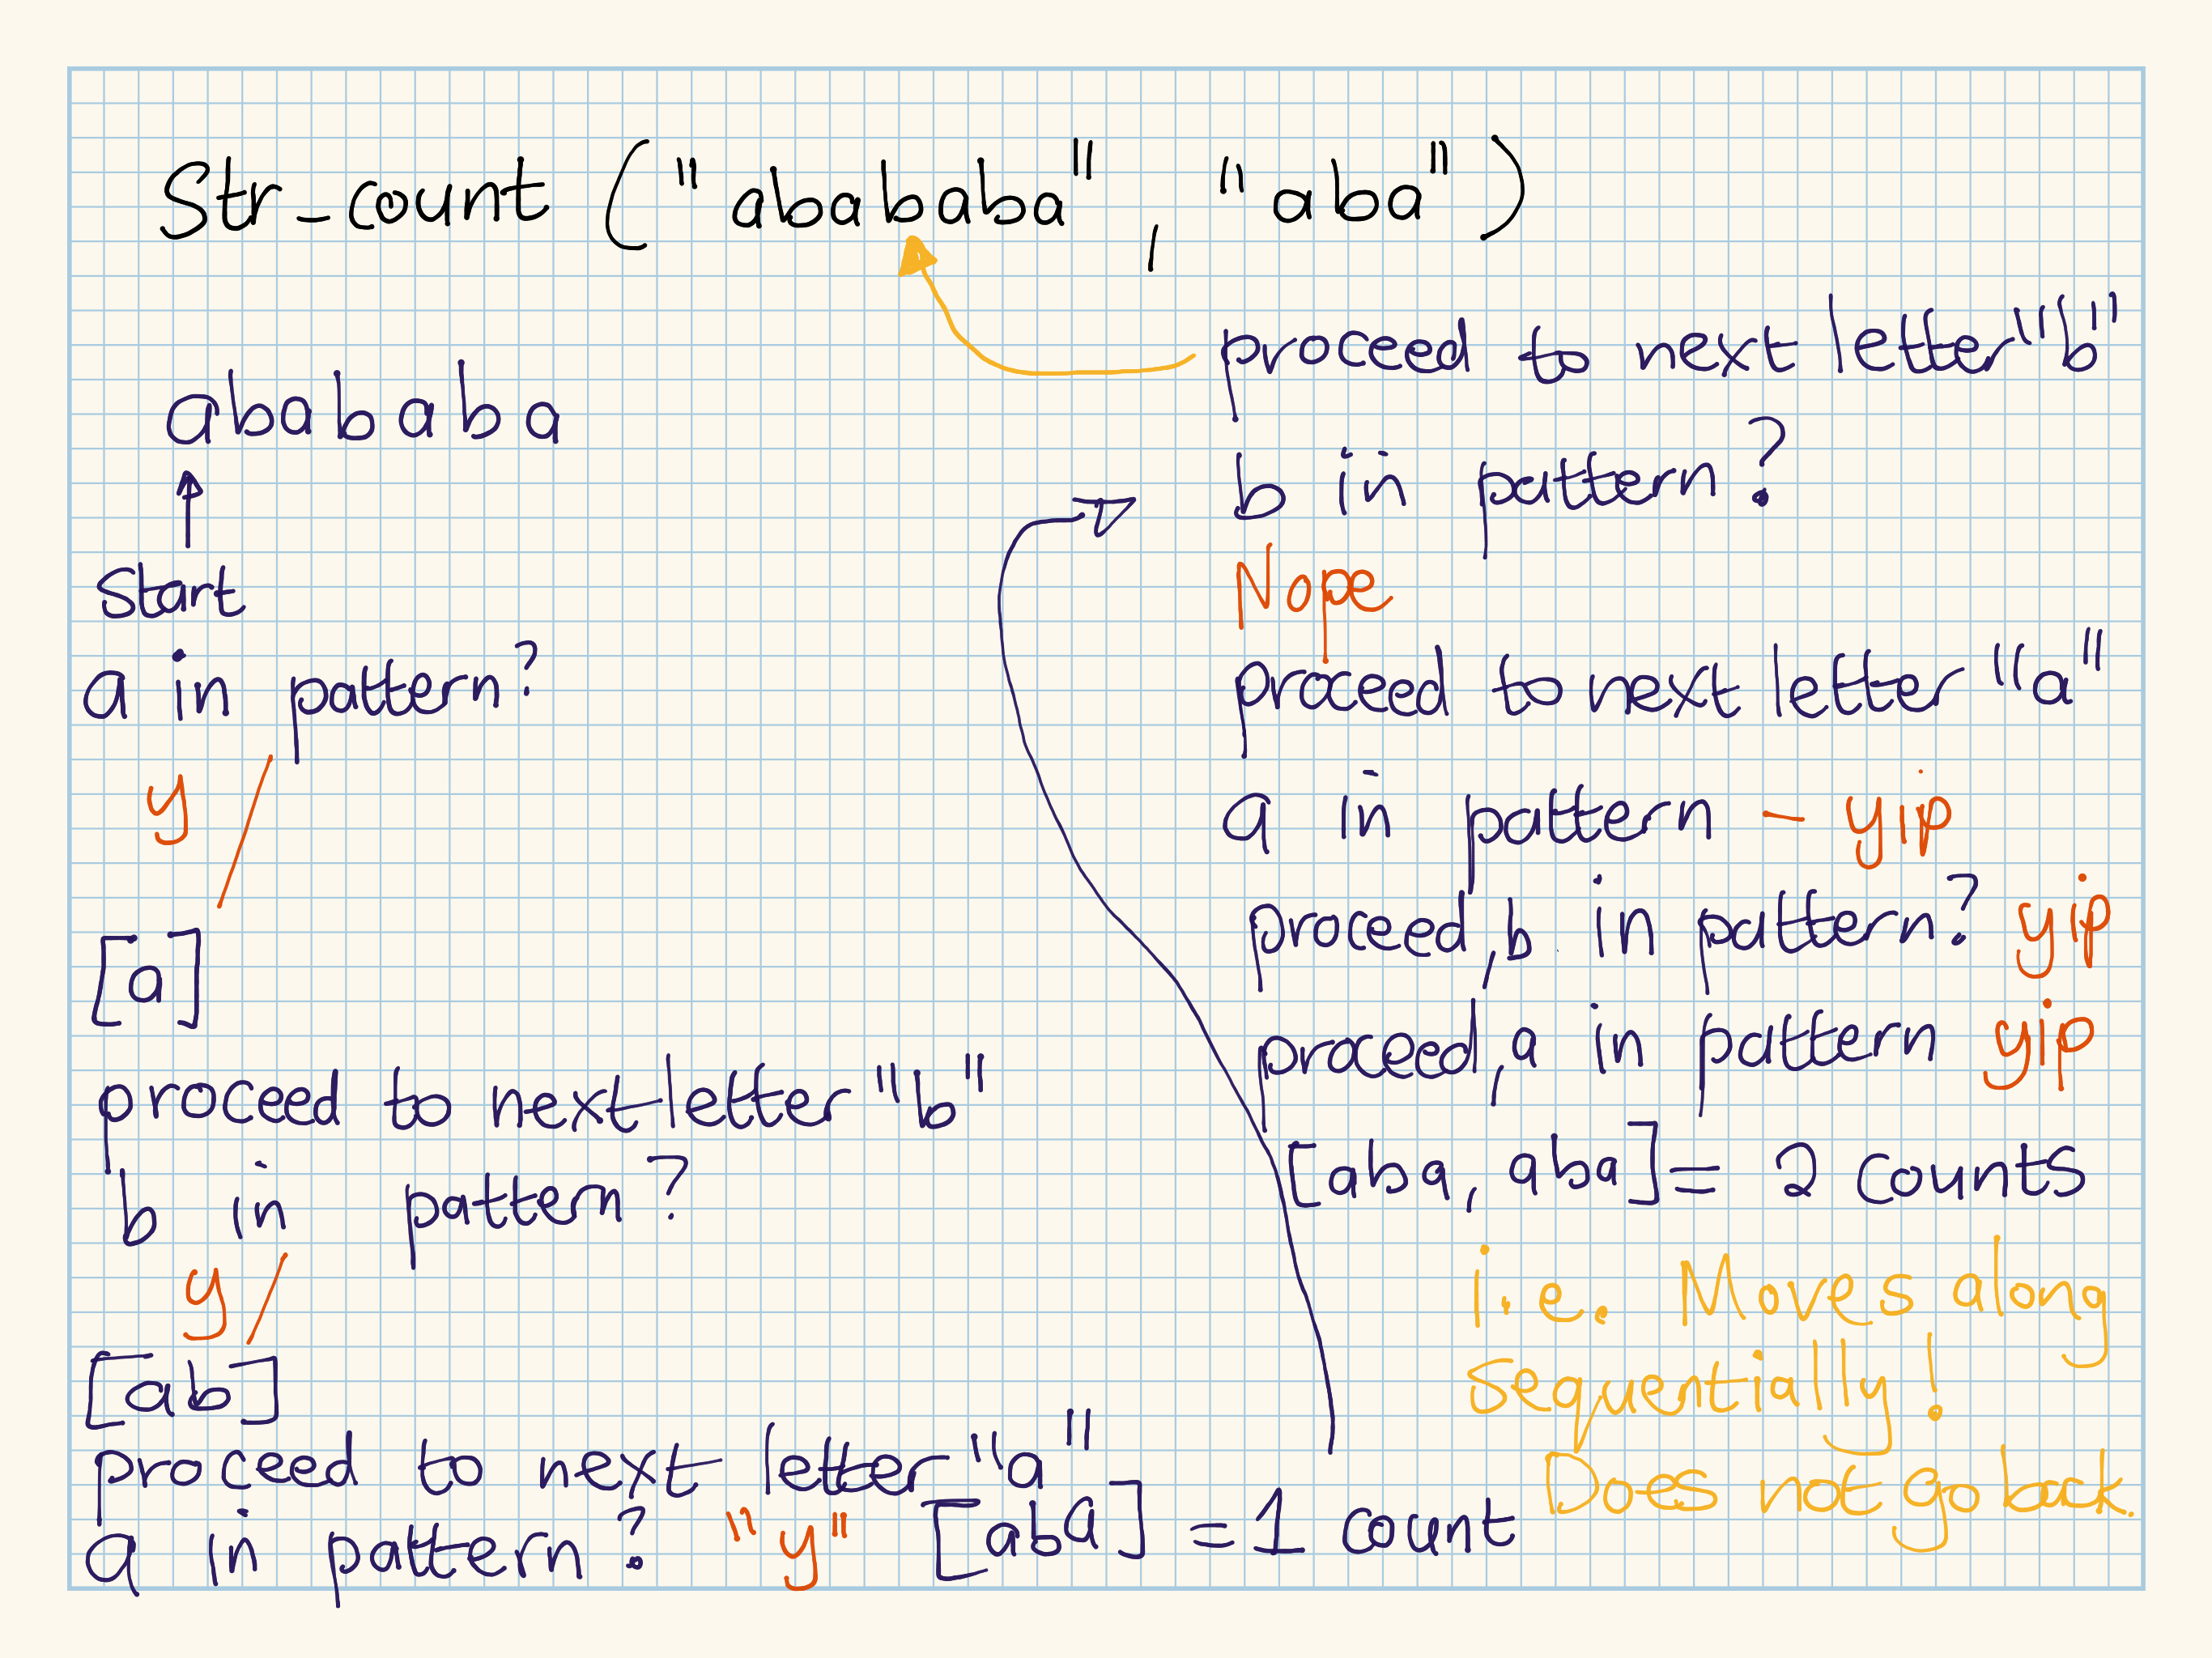 Str_count ("abababa", "aba")
abababa
start
a in pattern?
y
[a]
proceed to next letter "b"
b in pattern?
y
[ab]
proceed to next letter "a"
a in pattern? "y" [aba] = 1 count
proceed to next letter "b"
b in pattern?
Nope
proceed to next letter "a"
a in pattern - yip
proceed, b in pattern? yip
proceed, a in pattern yip
[aba, aba] = 2 counts
i.e. Moves along
sequentially!
Does not go back.